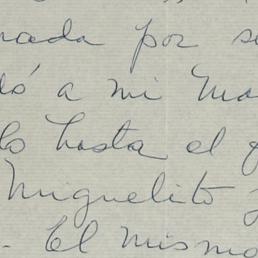 nada por se
dó a mi Ma
lo hasta el
Miguelito
. El mismo